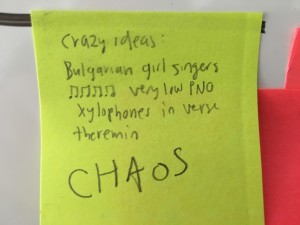 crazy ideas:
Bulgarian girl singers
♫♫♫♫ very low PNO
xylophones in verse
theremin
CHAOS